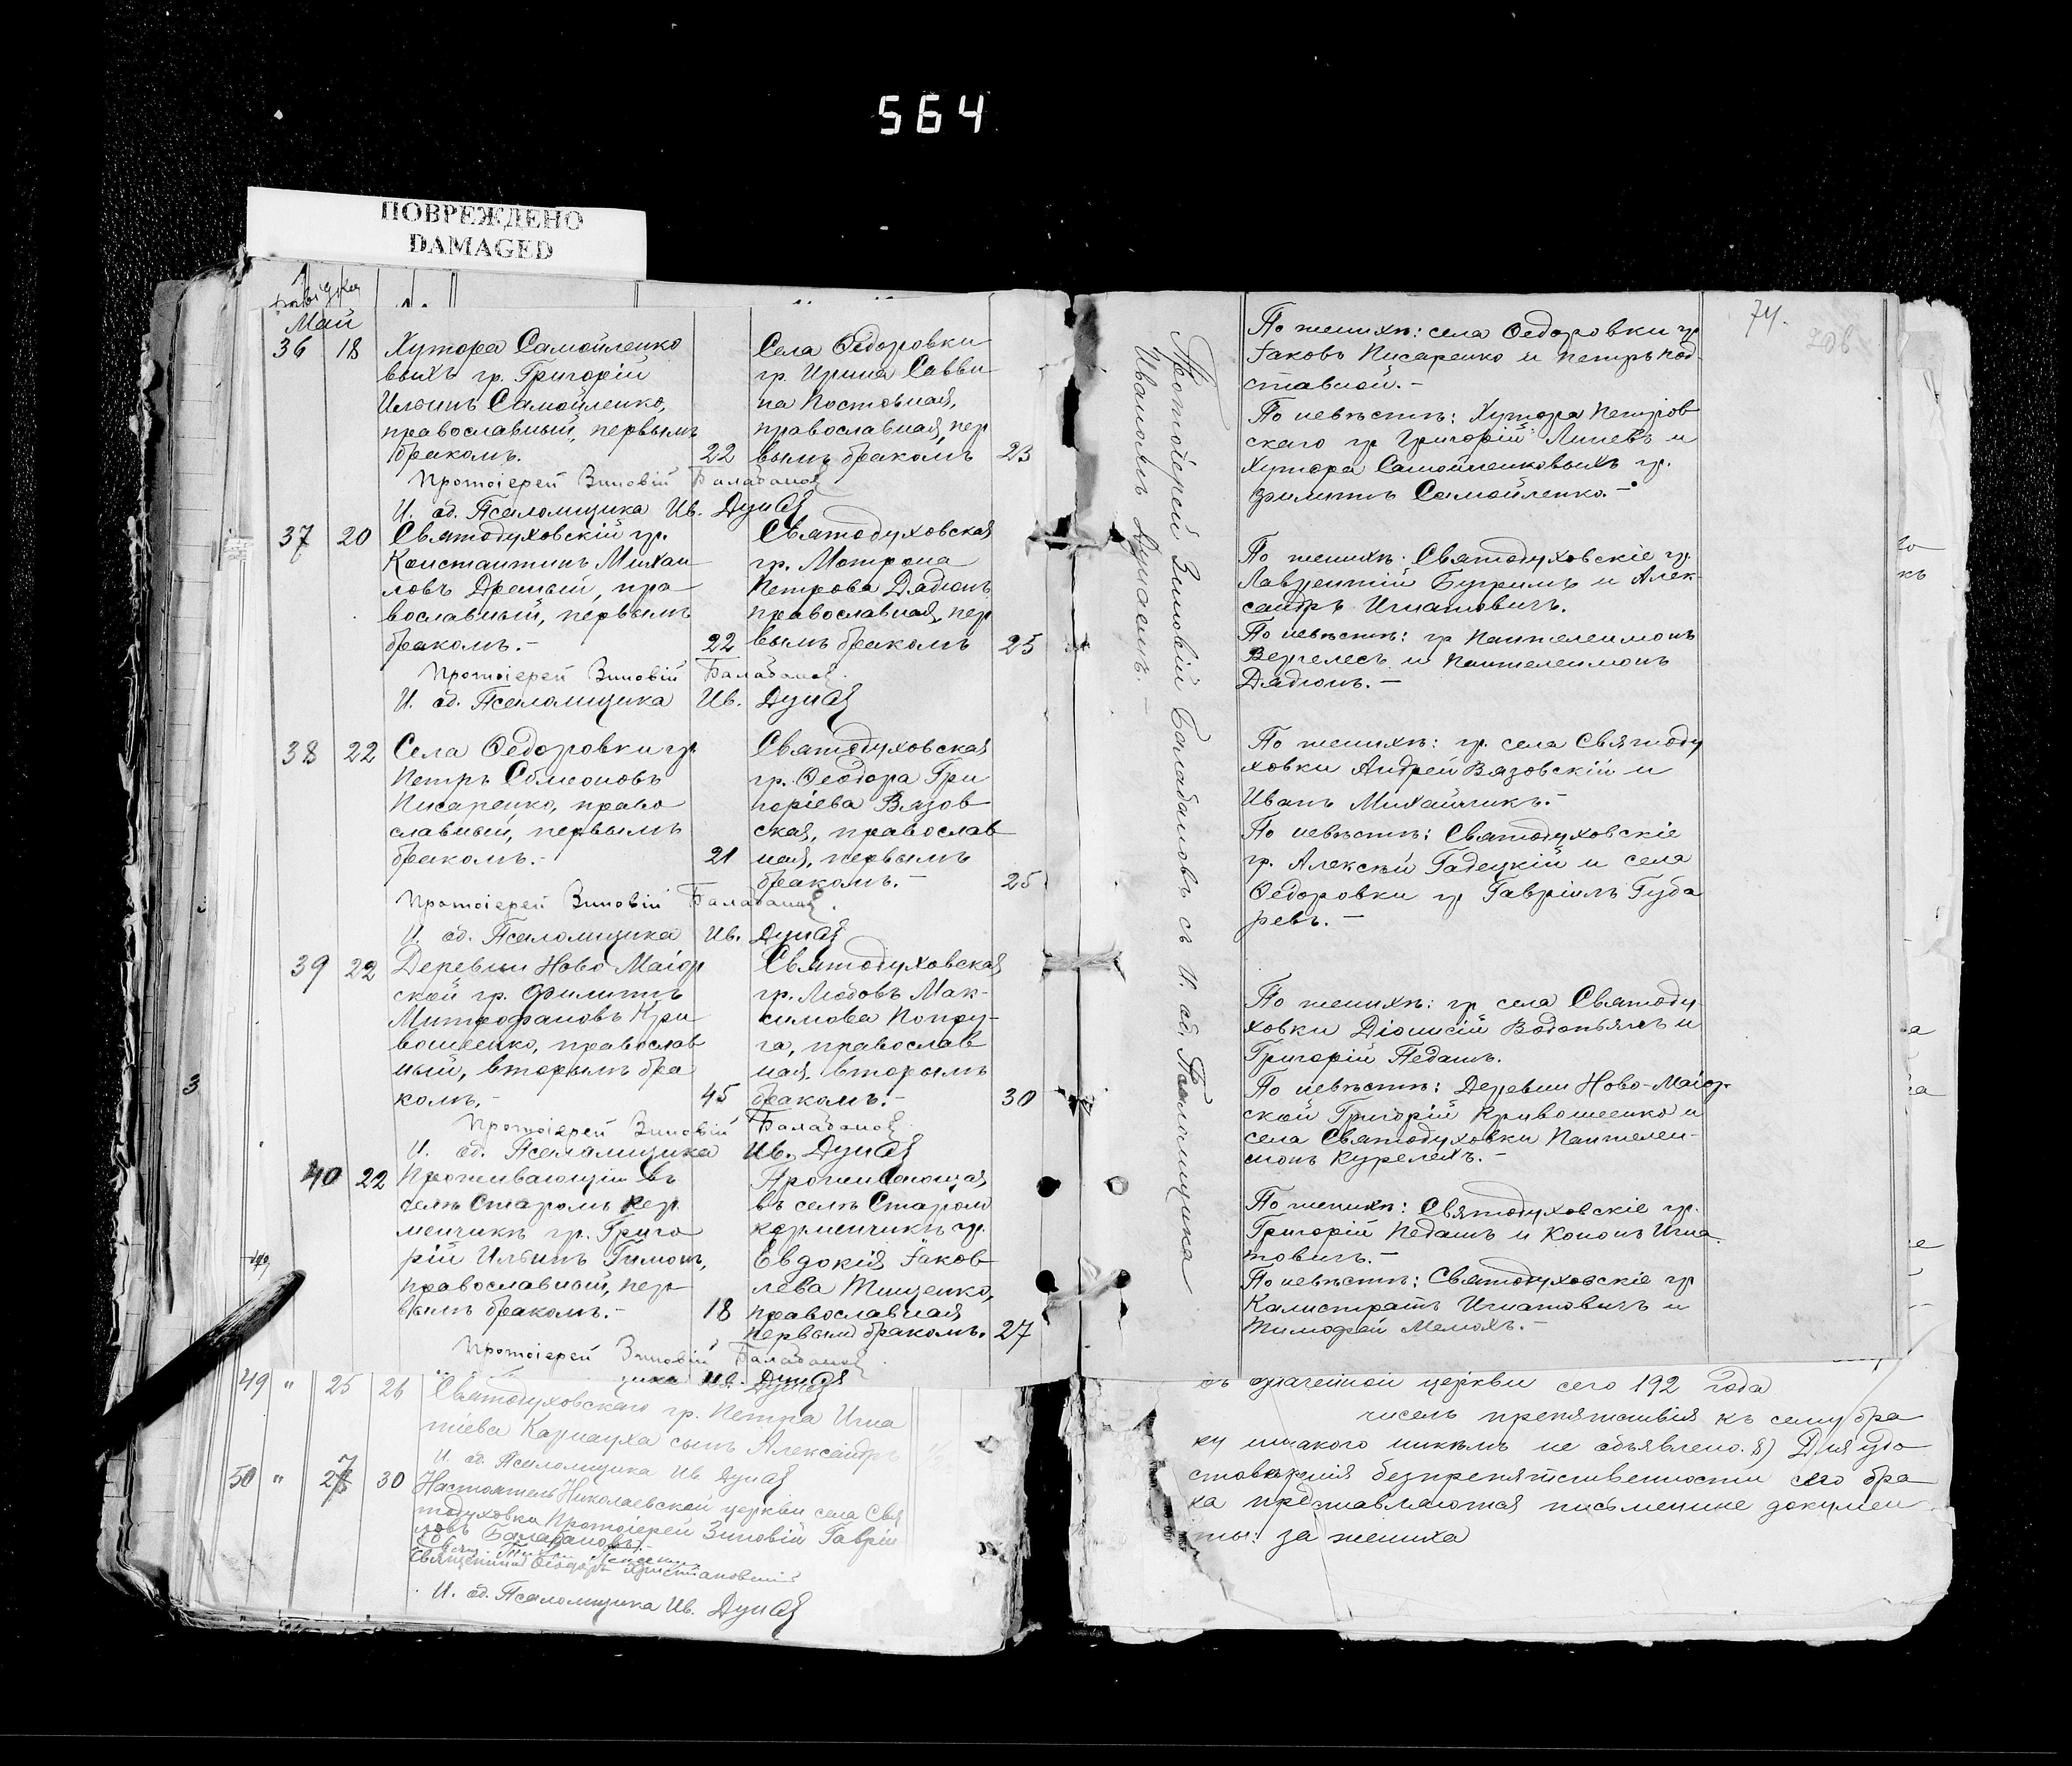 564
ПОВРЕЖДЕНО
DAMAGED
Май
36 18 Хутора Самойленко
выхъ гр. Григорій
Ильинъ Самойленко,
православный, первымъ
бракомъ. 22
Села Ѳедоровки
гр. Ирина Савви
на Постовная,
православная, пер
вымъ бракомъ 23
Протоіерей Зиновій Балабановъ
И. об. Псаломщика Ив. Дунай
37 20 Святодуховскій гр.
Константинъ Михаи
ловъ Дремый, пра
вославный, первымъ
бракомъ.- 22
Святодуховская
гр. Мотрона
Петрова Дадіонъ
православная, пер
вымъ бракомъ 25
Протоіерей Зиновій Балабановъ.
И. об. Псаломщика Ив. Дунай
38 22 Села Ѳедоровки гр.
Петръ Сѵмеоновъ
Писаренко, право
славный, первымъ
бракомъ.- 21
Святодуховская
гр. Ѳеодора Гри
горіева Вязов
ская, православ
ная, первымъ
бракомъ.- 25
Протоіерей Зиновій Балабановъ.
И. об. Псаломщика Ив. Дунай
39 22 Деревни Ново Маіор
ской гр. Филиппъ
Митрофановъ Кри
вошеенко, православ
ный, вторымъ бра
комъ.- 45
Святодуховская
гр. Любовъ Мак-
симова Попру-
га, православ
ная, вторымъ
бракомъ.- 30
Протоіерей Зиновій Балабановъ
И. об. Псаломщика Ив. Дунай
40 22 Проживающій въ
селѣ Старомъ Кер
менчикѣ гр. Григо
рій Ильинъ Гимонъ,
православный, пер
вымъ бракомъ.- 18
Проживающая
въ селѣ Старом
керменчикѣ гр.
Евдокія Іаков
лева Тищенко,
православная
первымъ бракомъ. 27
Протоіерей Зиновій Балабановъ.
щика Ив. Дунай
49 " 25 26 Святодуховскаго гр. Петра Игна
тіева Карнауха сынъ Александръ
И. об. Псаломщика Ив. Дунай
50 " 27 30 Настоятель Николаевской церкви села Свя
тодуховки Протоіерей Зиновій Гаврі
ловъ Балабановъ.
Священникъ Ѳеодоръ
И. об. Псаломщика Ив. Дунай
Протоіерей Зиновій Балабановъ съ И. об. Псаломщика
Иваномъ Дунаемъ.-
74.
По женихѣ: села Ѳедоровки гр
Іаковъ Писаренко и Петръ Под-
ставной.-
По невѣстѣ: Хутора Петров
скаго гр Григорій Линевъ и
Хутора Самойленковыхъ гр.
Филиппъ Самойленко.-
По женихѣ: Святодуховскіе гр.
Лаврентій Бугримъ и Алек-
сандръ Игнатовичъ.
По невѣстѣ: гр Пантелеимонъ
Вергелесъ и Пантелеимонъ
Дядіонъ.-
По женихѣ: гр. села Святоду
ховки Андрей Вязовскій и
Иванъ Михайликъ.-
По невѣстѣ: Святодуховскіе
гр. Алексѣй Гадецкій и села
Ѳедоровки гр Гавріилъ Губа
ревъ.-
По женихѣ: гр. села Святоду-
ховки Діонисій Водопьянъ и
Григорій Педашъ.
По невѣстѣ: Деревни Ново-Маіор-
ской Григорій Кривошеенко и
села Святодуховки Пантелеи-
монъ Курелехъ.-
По женихѣ: Святодуховскіе гр.
Григорій Педашъ и Кононъ Игна
товичъ.-
По невѣстѣ: Святодуховскіе гр
Калистратъ Игнатовичъ и
Тимофей Мелохъ.-
означенной церкви сего 192 года
чиселъ препятствія къ сему бра
ку никакого никѣмъ не объявлено. 8) Для удо
стовѣренія безпрепятственности сего бра
ка представляются письменные докумен
ты: за жениха